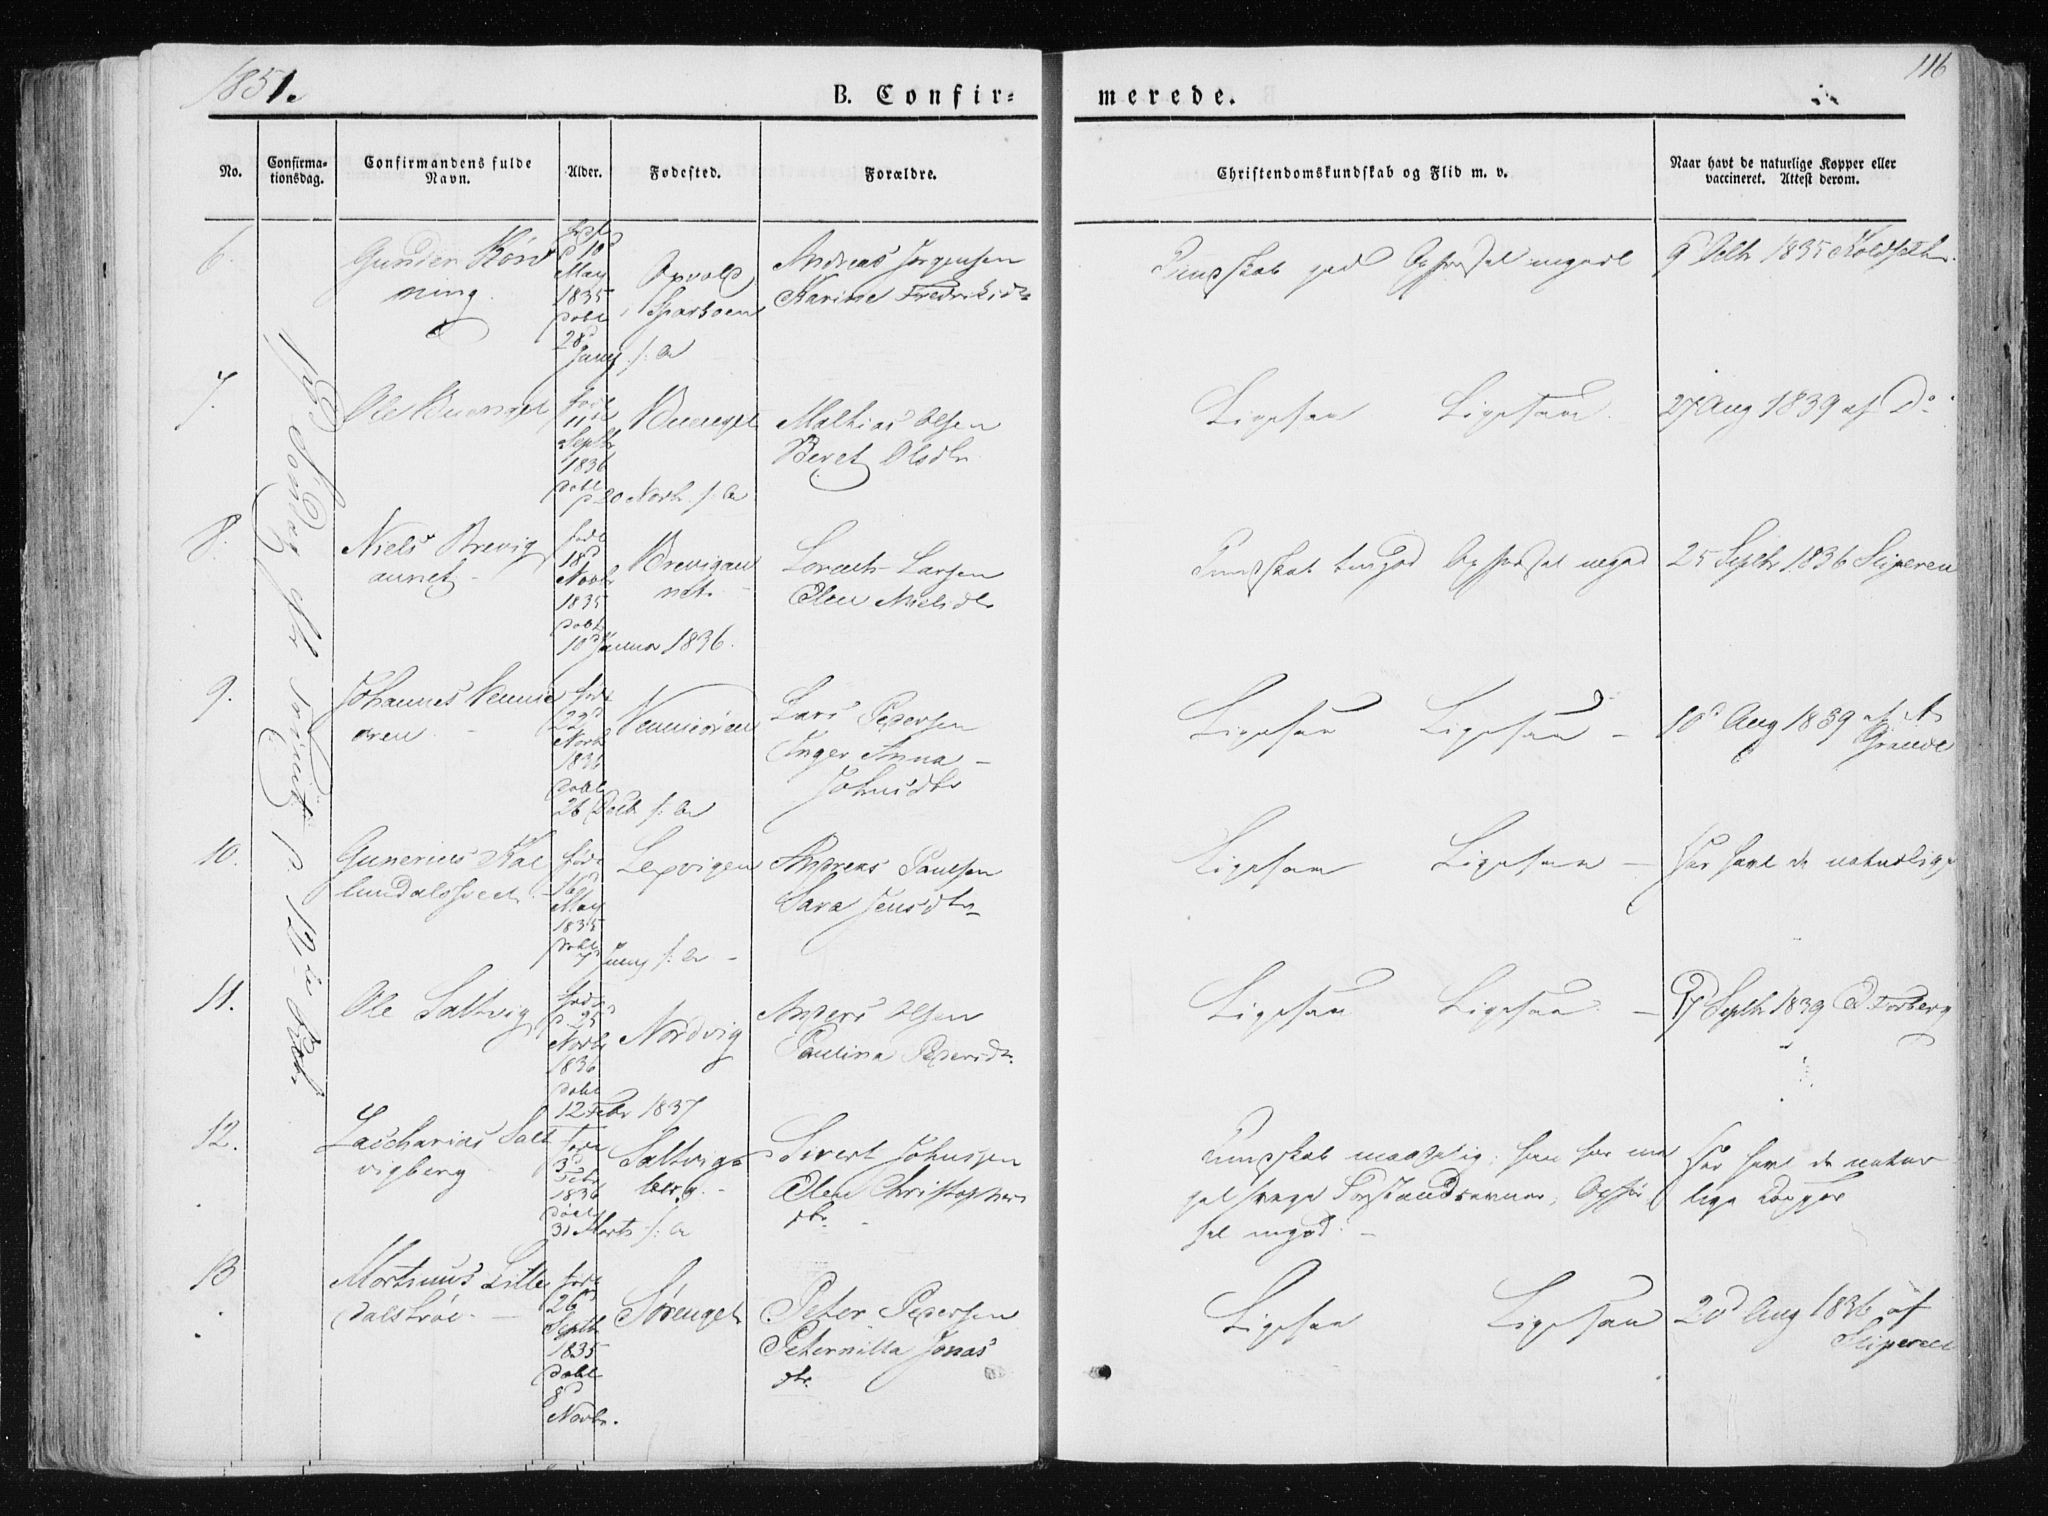 1851.
116
B. Confir=
merede.
No.
Confirma-
tionsdag.
Confirmandens fulde
Navn.
Alder.
Fødested.
Forældre.
Christendomskundskab og Flid m. v.
Naar havt de naturlige Kopper eller
vaccineret. Attest derom.
6.
født
d 10d
May
1835
døbt
28d
Juny s: A
Sparboen
Andreas Jørgensen
Karine Fredriksdtr
Kundskab god Opførsel megodt
9 Octbr 1835
7.
Ole
født
11te
Septbr
1836
døbt
d 20 Novbr s: A
Mathias Olsen
Beret Olsdtr
Ligesaa Ligesaa
27 Aug 1839 af Do
8.
Niels Brevig
aunet
født
18d
Novbr
1835
døbt
10d Januar 1836.
Brevigau
net.
Lorents Larsen
Elen Nielsdtr
Kundskab Opførsel megod
25 Septbr 1836 Stiperen
9.
Johannes
øren
født
22d
Novbr
1836
døbt
26 Decb s: A
Lars Pedersen
Inger Anna
Johnsdtr
Ligesaa Ligesaa
10d Aug 1839 af A
Grande
10.
Gunerius Kal
lundalsveet
født
16d
May
1835
døbt
7d Juny s: A
Lexvigen
Andreas Paulsen
Sara Jensdtr
Ligesaa Ligesaa
Har havt de naturlige
11.
Ole Saltvig
født
d 25
Novbr
1836
døbt
12 Febr 1837
Nordvig
Anders Olsen
Paulina Pedersdtr
Ligesaa Ligesaa
17 Septbr 1839 Forberg
12.
Zaccharias Salt
vigberg
født
3d
Febr
1836
døbt
31 Marts s: A
Saltvig
berg.
Sivert Johnsen
Elen Christophers
dtr
Kundskab maadelig; han har me
get svage Forstandsevner; Opfør
sel megod.
Har havt de natur
lige Kopper
13
Mortinus Lille
dalstrøe
født
26d
Septb
1835
døbt
8d
Novbr.
Sørenget
Peter Pedersen
Peternilla Jonas
dtr.
Ligesaa Ligesaa
20d Aug 1836 af
Stiperen